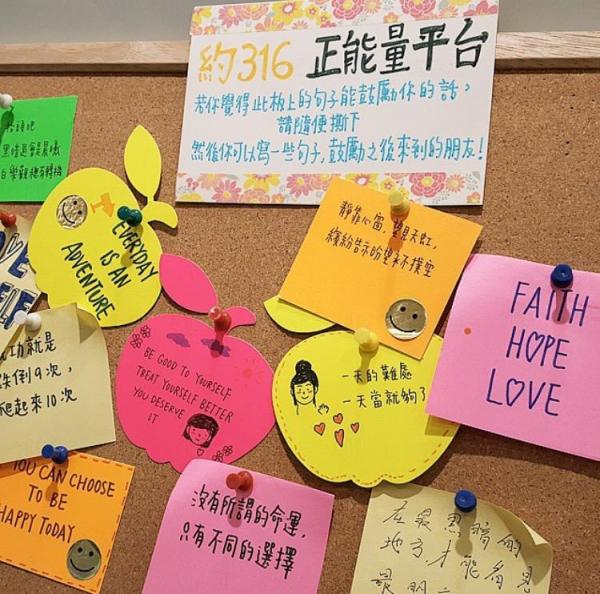 約316 正能量平台
若你覺得此板上的句子能鼓勵你的話，
請隨便撕下
然後你可以寫一些句子，鼓勵之後來到的朋友！
抬頭吧
EVERYDAY
IS AN
ADVENTURE
靜靠心窗，望見天虹，
繽紛告示盼望永不撲空
FAITH
HOPE
LOVE
BE GOOD TO YOURSELF
TREAT YOURSELF BETTER
YOU DESERVE
IT
一天的難處
一天當就夠了
功就是
跌倒9次，
爬起來10次
YOU CAN CHOOSE
TO BE
HAPPY TODAY
沒有所謂的命運，
只有不同的選擇
在最黑暗的
地方，才能看見
最明